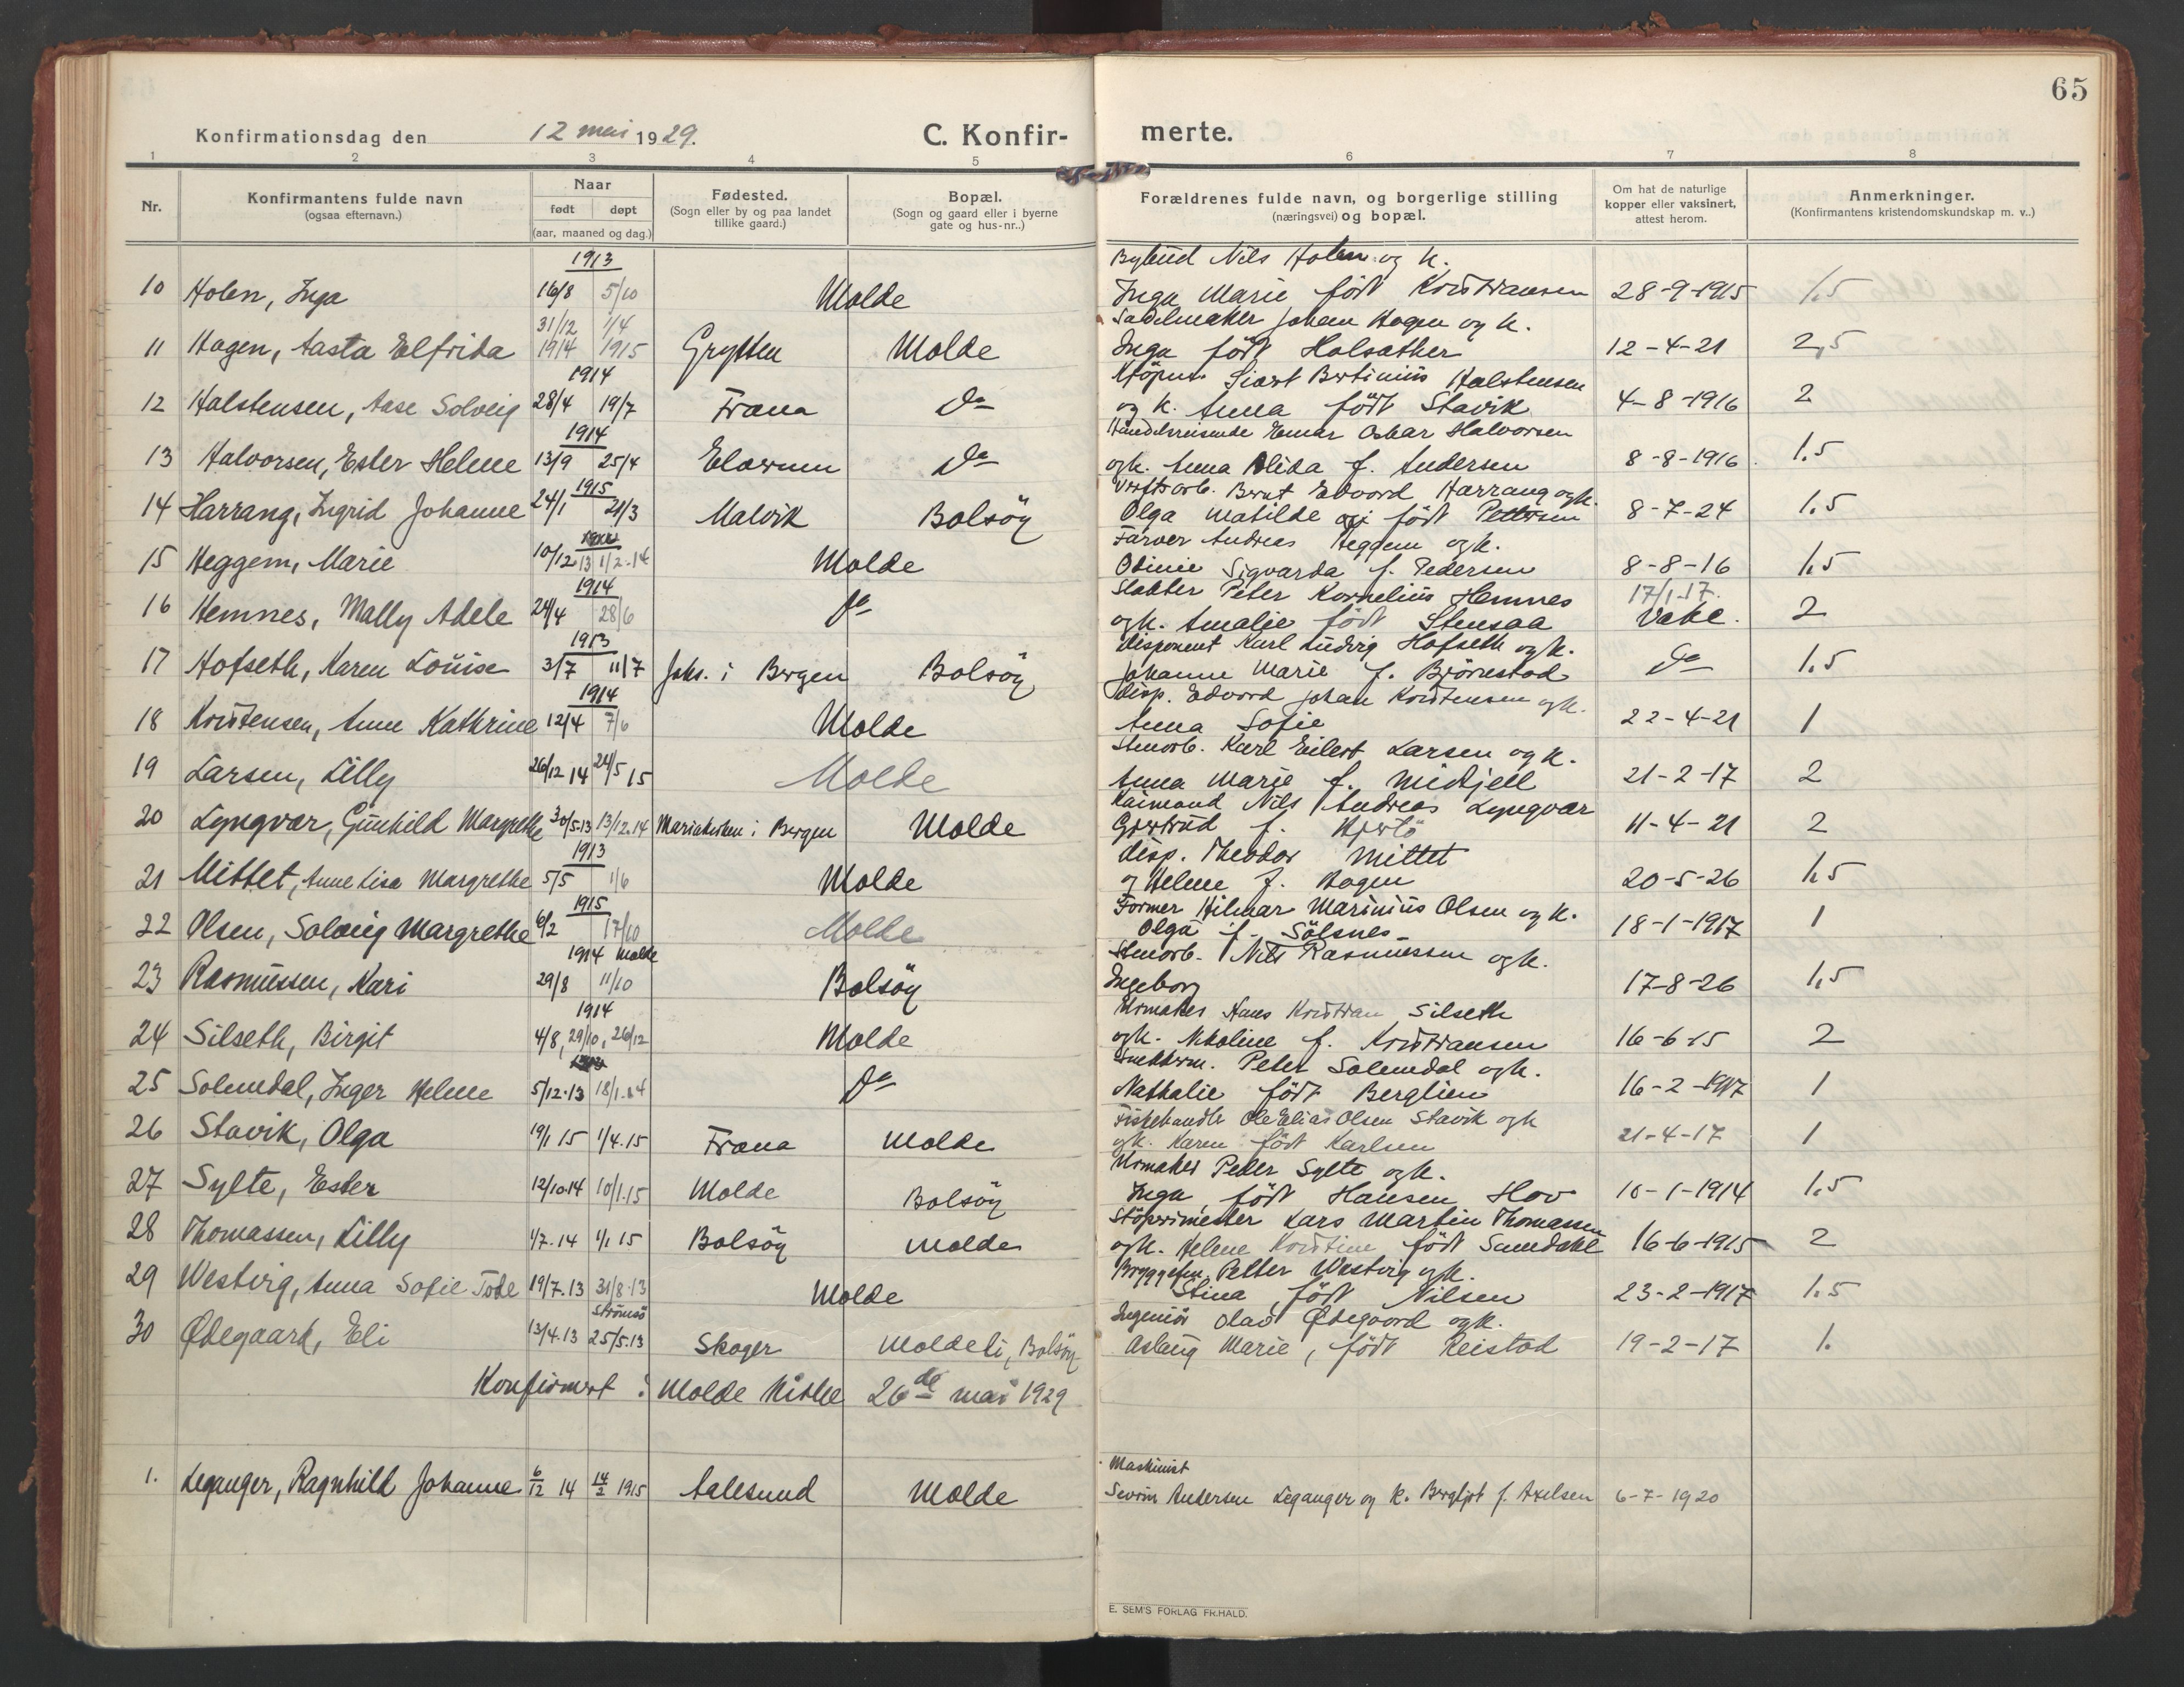 65
Konfirmationsdag den 12 mai 1929. C. Konfirmerte.
1 2 3 4 5 6 7 8
Nr. Konfirmantens fulde navn (ogsaa efternavn.) Naar født døpt (aar, maaned og dag.) Fødested. (Sogn eller by og paa landet tillike gaard.) Bopæl. (Sogn og gaard eller i byerne gate og hus-nr..) Forældrenes fulde navn, og borgerlige stilling (næringsvei) og bopæl. Om hat de naturlige kopper eller vaksinert, attest herom. Anmerkninger. (Konfirmantens kristendomskundskap m. v..)
1913 Bybud Nils Holen og k.
10 Holen, Inga 16/8 5/10 Molde Inga Marie født Kristiansen 28-9-1915 1.5
31/12 1/4 Sadelmaker Johan Hagen og k.
11 Hagen, Aasta Elfrida 1914 1915 Grytten Molde Inga født Holsæther 12-4-21 2,5
1914 Sivert Bertinius Halstensen
12 Halstensen, Aase Solveig 28/4 19/7 Fræna do og k. Anna født Stavik 4-8-1916 2
1914 Handelsreisende Einar Oskar Halvorsen
13 Halvorsen, Ester Helene 13/9 25/4 Elverum do og k. Anna Alida f. Andersen 8-8-1916 1.5
1915 Verftsarb. Bernt Edvard Harrang og k.
14 Harrang, Ingrid Johanne 24/1 21/3 Malvik Bolsøy Olga Matilde født Pettersen 8-7-24 1.5
Farver Andreas Heggem og k.
15 Heggem, Marie 10/12 13 1/2-14 Molde Sigvarda f. Pedersen 8-8-16 1.5
1914 Slakter Peter Kornelius Hemnes 17/1-17.
16 Hemnes, Mally Adele 24/4 28/6 do og k. Amalie født Stensaa Vakc. 2
1913 Disponent Karl Ludvig Hofseth og k.
17 Hofseth, Karen Louise 3/7 11/7 Johs. i Bergen Bolsøy Johanne Marie f. Bjørnestad do 1.5
1914 Disp. Edvard Johan Kristensen og k.
18 Kristensen, Anne Kathrine 12/4 7/6 Molde Anna Sofie 22-4-21 1
Stenarb. Karl Eilert Larsen og k.
19 Larsen, Lilly 26/12 14 24/5 15 Molde Anna Marie f. Midtjell 21-2-17 2
Kaimand Nils Andreas Lyngvær
20 Lyngvær, Gunhild Margrethe 30/5-13 13/12-14 Mariakirken i Bergen Molde Gjertrud f. 11-4-21 2
1913 Disp. Theodor Mittet
21 Mittet, Anne Lisa Margrethe 5/5 1/6 Molde og Helene f. Bogen 20-5-26 1.5
1915 Former Hilmar Marinius Olsen og k.
22 Olsen, Solveig Margrethe 6/2 17/10 Molde Olga f. Sølsnes 18-1-1917 1
1914 Molde Stenarb. Nils Rasmussen og k.
23 Rasmussen, Kari 29/8 11/10 Bolsøy Ingeborg 17-8-26 1,5
1914 Urmaker Hans Kristian Silseth
24 Silseth, Birgit 4/8, 29/10, 26/12 Molde og k. Nikoline f. Kristiansen 16-6-15 2
Peter Solemdal og k.
25 Solemdal, Inger Helene 5/12-13 18/1-14 do Nathalie født Berglien 16-2-1917 1
Fiskehandler Ole Elias Olsen Stavik og k
26 Stavik, Olga 19/1 15 1/4.15 Fræna Molde og k. Karen født Karlsen 21-4-17 1
Urmaker Peder Sylte og k.
27 Sylte, Ester 12/10-14 10/1.15 Molde Bolsøy Inga, født Hansen Hov 10-1-1914 1.5
Støperimester Lars Martin Thomassen
28 Thomassen, Lilly 1/7.14 1/1 15 Bolsøy Molde og k. Helene Kristine født Sundahl 16-6-1915 2
Petter Westvig og k.
29 Westvig, Anna Sofie Tode 19/7.13 31/8-13 Molde Stina født Nilsen 23-2-1917 1.5
Strømsø Ingeniør Olav Ødegaard og k.
30 Ødegaard, Eli 13/4.13 25/5.13 Skoger Moldeli, Bolsøy Aslaug Marie, født Reistad 19-2-17 1.
Konfirmert i Molde Kirke 26de mai 1929
Maskinist
1. Leganger, Ragnhild Johanne 6/12 14 14/2 1915 Aalesund Molde Severin Andersen Leganger og k. Bergljot f. Axelsen 6-7-1920
E. SEM'S FORLAG FR.HALD.